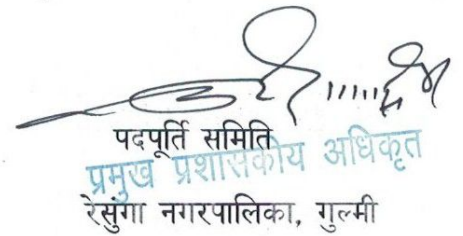 पदपूर्ति समिति
प्रमुख प्रशासकीय अधिकृत
रेसुंगा नगरपालिका, गुल्मी